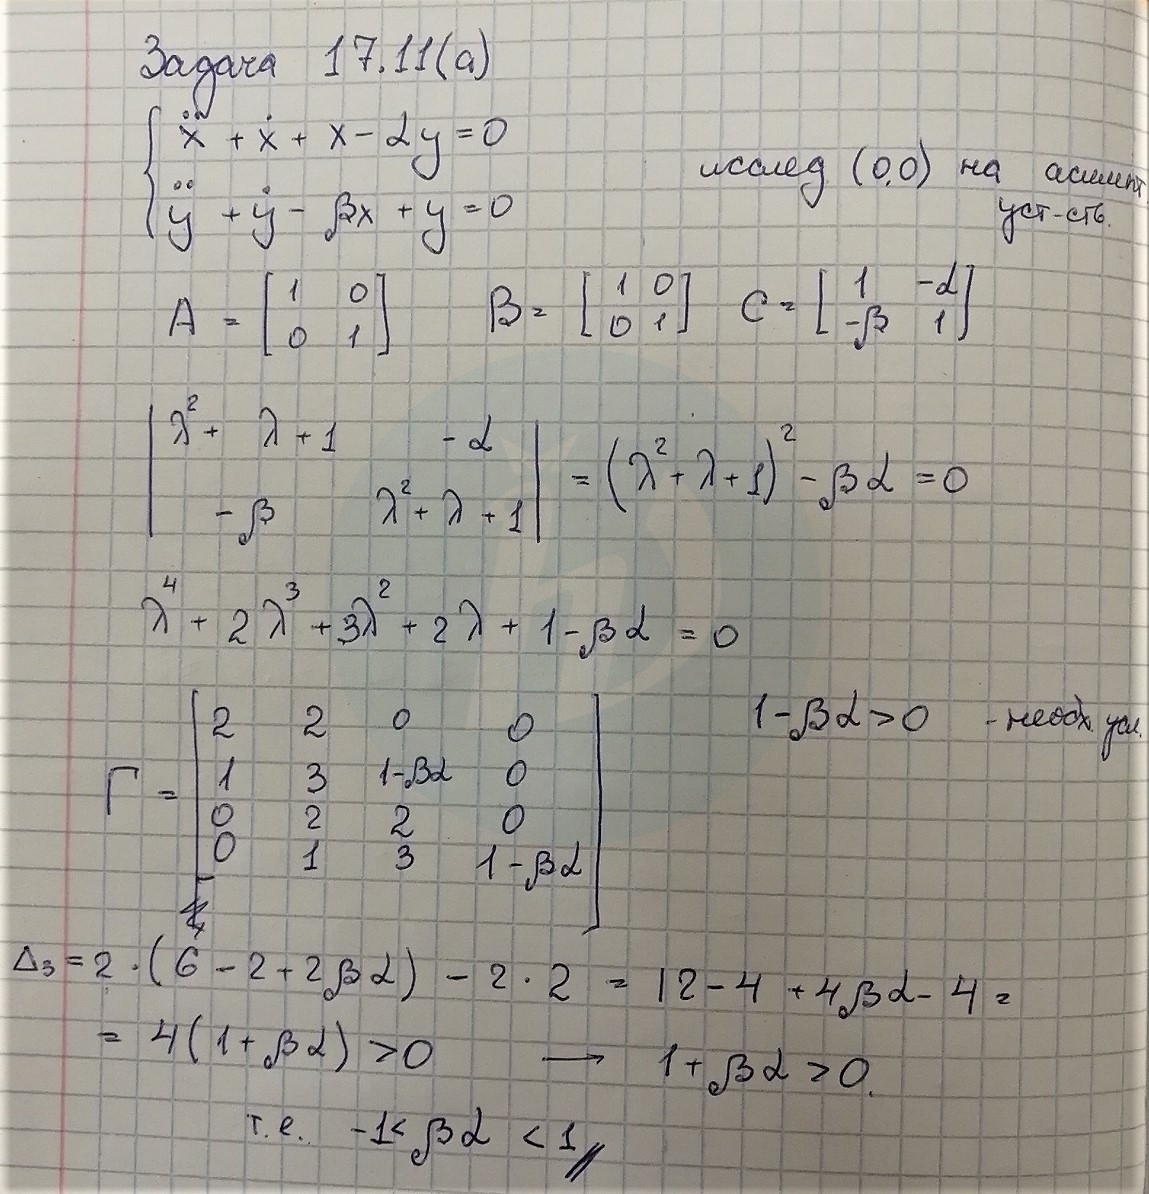 Задача 17.11(а)
ẍ + ẋ + x - αy = 0
ÿ + ẏ - βx + y = 0
исслед (0,0) на асимпт.
уст-сть.
A = [1 0; 0 1] B = [1 0; 0 1] C = [1 -α; -β 1]
|λ² + λ + 1 -α; -β λ² + λ + 1| = (λ² + λ + 1)² - βα = 0
λ⁴ + 2λ³ + 3λ² + 2λ + 1 - βα = 0
Γ = [2 2 0 0; 1 3 1-βα 0; 0 2 2 0; 0 1 3 1-βα]
1 - βα > 0 - необх. усл.
Δ₃ = 2·(6 - 2 + 2βα) - 2·2 = 12 - 4 + 4βα - 4 =
= 4(1 + βα) > 0 → 1 + βα > 0.
т.е. -1 < βα < 1